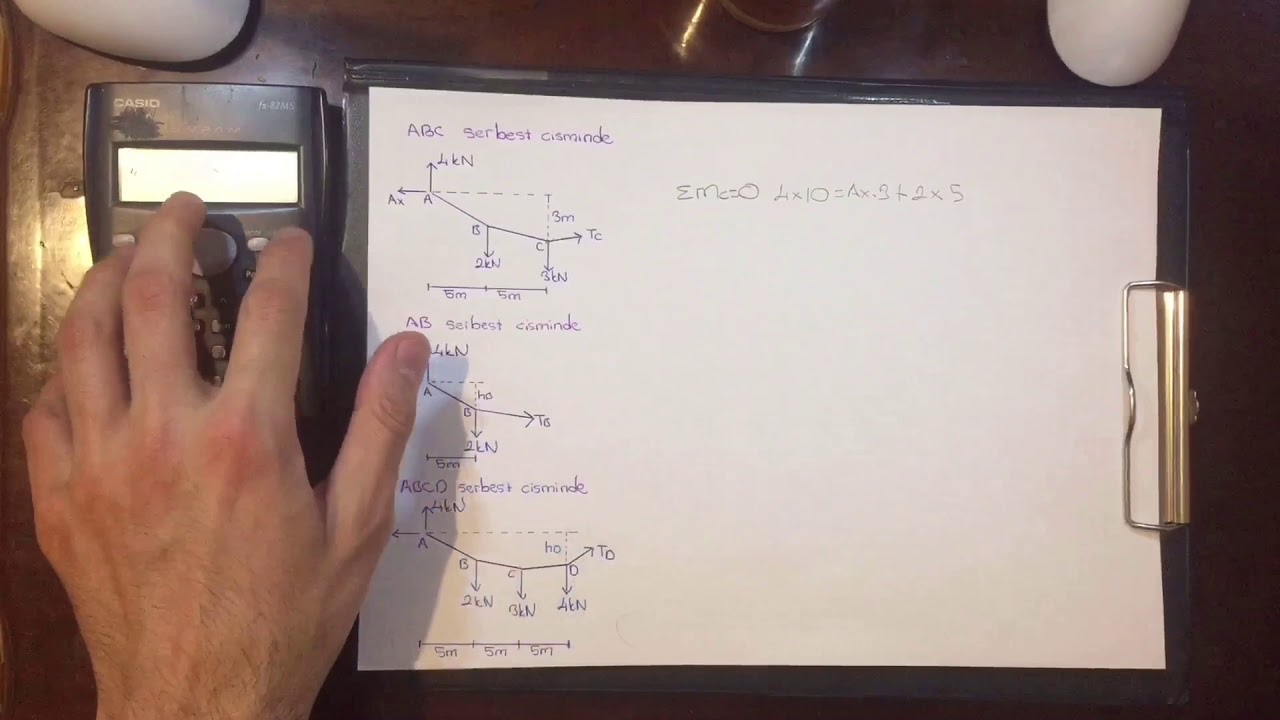 CASIO
fx-82MS
ABC serbest cisminde
4kN
Ax
A
3m
B
Tc
C
2kN
3kN
5m 5m
ΣMc=0 4x10=Ax.3+2x5
AB serbest cisminde
4kN
A
hB
B
TB
2kN
5m
ABCD serbest cisminde
4kN
A
hD
TD
B
C
D
2kN 3kN 4kN
5m 5m 5m